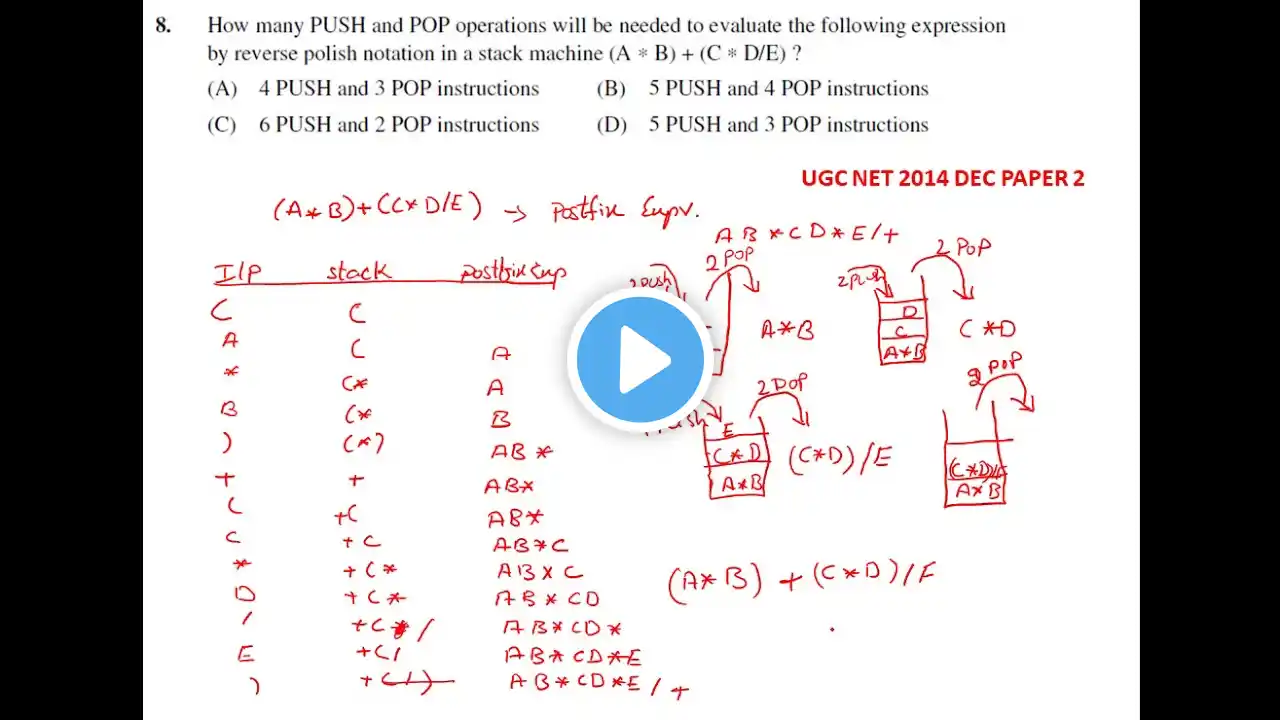 8. How many PUSH and POP operations will be needed to evaluate the following expression
by reverse polish notation in a stack machine (A * B) + (C * D/E) ?
(A) 4 PUSH and 3 POP instructions (B) 5 PUSH and 4 POP instructions
(C) 6 PUSH and 2 POP instructions (D) 5 PUSH and 3 POP instructions
UGC NET 2014 DEC PAPER 2
(A*B)+(C*D/E) → Postfix Expr.
AB*CD*E/+
I/P stack postfix Exp
( (
A ( A
* (* A
B (* B
) (*) AB*
+ + AB*
( +( AB*
C +( AB*C
* +(* AB*C
D +(* AB*CD
/ +(*/ AB*CD*
E +(/ AB*CD*E
) +(/) AB*CD*E/+
2push
2 POP
A*B
2push
2 POP
D
C
A*B
C*D
2 POP
E
C*D
A*B
(C*D)/E
2 POP
(C*D)/E
A*B
(A*B) + (C*D)/E